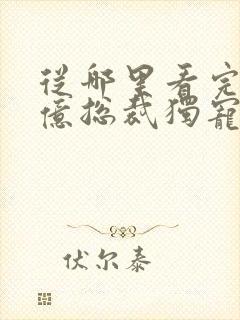 從哪里看完
億總裁獨寵
伏尔泰